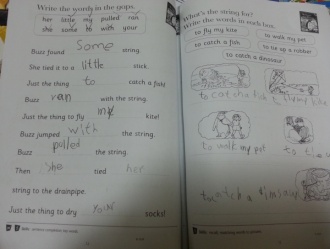 Write the words in the gaps.
her little my pulled ran
she some to with your
Buzz found some string.
She tied it to a little stick.
Just the thing to catch a fish!
Buzz ran with the string.
Just the thing to fly my kite!
Buzz jumped with the string.
Buzz pulled the string.
Then she tied her
string to the drainpipe.
Just the thing to dry your socks!
What's the string for?
Write the words in each box.
to fly my kite to walk my pet
to catch a fish to tie up a robber
to catch a dinosaur
to catch a fish to fly my kite
to walk my pet to
to catch a